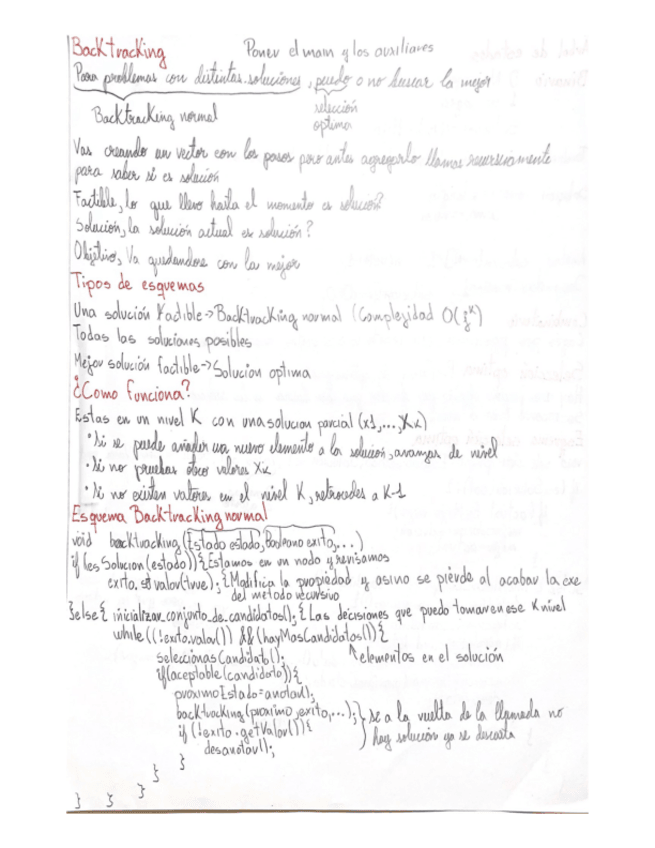 Backtracking Poner el main y los auxiliares
Para problemas con distintas soluciones, puedo o no buscar la mejor
selección
Backtracking normal
optima
Vas creando un vector con los pasos pero antes agregarlo llamas recursivamente
para saber si es solución
Factible, lo que llevo hasta el momento es solución?
Solución, la solución actual es solución?
Objetivo, Va quedandose con la mejor
Tipos de esquemas
Una solución Factible->Backtracking normal (Complejidad O(
Todas las soluciones posibles
Mejor solución factible->Solucion optima
¿Como funciona?
Estas en un nivel K con una solucion parcial (x1,...,Xk)
· Si se puede añadir un nuevo elemento a la solución, avanzas de nivel
· Si no pruebas otros valores Xk
· Si no existen valores en el nivel K, retrocedes a K-1
Esquema Backtracking normal
void backtracking(Estado estado, Booleano exito,...)
if(esSolucion(estado)){Estamos en un nodo y revisamos
exito.setvalor(true); {Modifica la propiedad y asi no se pierde al acabar la exe
del metodo recursivo
}else{ inicializar_conjunto_de_candidatos(); {Las decisiones que puedo tomar en ese K nivel
while((!exito.valor()) && (hayMasCandidatos()){
seleccionasCandidato(); elementos en el solución
if(aceptable(candidato)){
proximoEstado=anotar();
backtracking(proximo,exito,...); } se a la vuelta de la llamada no
if (!exito.getValor()){ hay solución ya se descarta
desanotar();
}
}
} } }